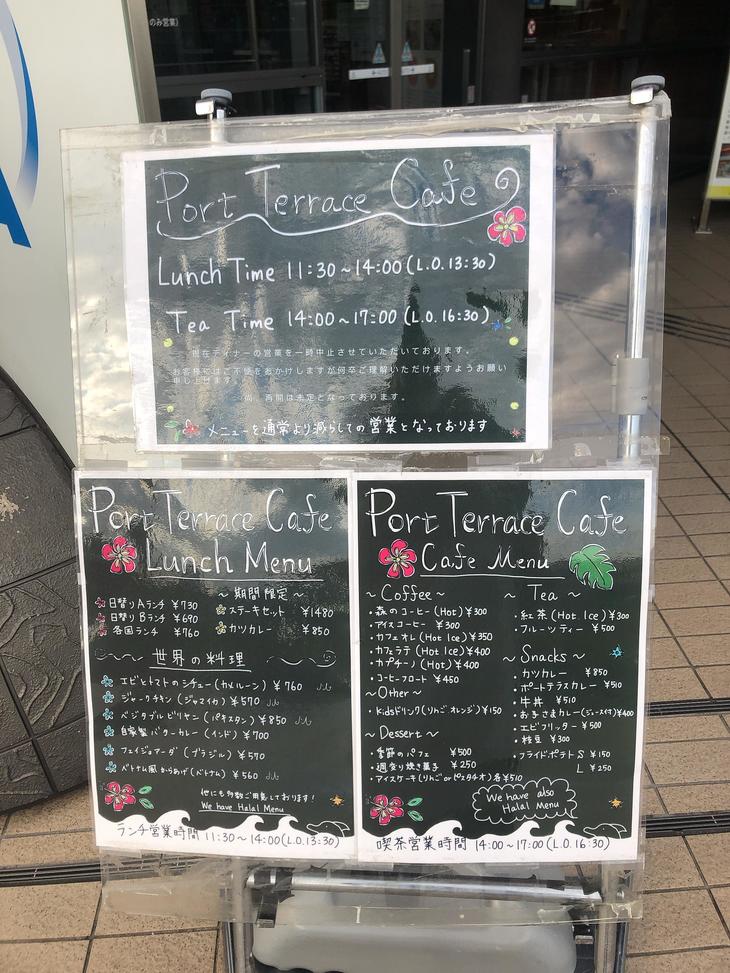 のみ営業)
Port Terrace Cafe
Lunch Time 11:30~14:00(L.O.13:30)
Tea Time 14:00~17:00(L.O.16:30)
現在ディナーの営業を一時中止させていただいております。
お客様にはご不便をおかけしますが何卒ご理解いただけますようお願い
申し上げます。
尚、再開は未定となっております。
メニューを通常より減らしての営業となっております
Port Terrace Cafe
Lunch Menu
日替りAランチ ¥730
日替りBランチ ¥690
各国ランチ ¥760
~期間限定~
ステーキセット ¥1480
カツカレー ¥850
世界の料理
エビとトマトのシチュー(カメルーン) ¥760
ジャークチキン(ジャマイカ) ¥570
ベジタブルビリヤン(パキスタン) ¥850
自家製バターカレー(インド) ¥700
フェイジョアーダ(ブラジル) ¥570
ベトナム風からあげ(ベトナム) ¥560
他にも多数ご用意しております!
We have Halal Menu
ランチ営業時間 11:30~14:00(L.O.13:30)
Port Terrace Cafe
Cafe Menu
~Coffee~
・森のコーヒー(Hot) ¥300
・アイスコーヒー ¥300
・カフェオレ(Hot Ice) ¥350
・カフェラテ(Hot Ice) ¥400
・カプチーノ(Hot) ¥400
・コーヒーフロート ¥450
~Other~
・Kidsドリンク(りんごオレンジ) ¥150
~Dessert~
・季節のパフェ ¥500
・週変り焼き菓子 ¥250
・アイスケーキ(りんごorピスタチオ)各¥510
~Tea~
・紅茶(Hot Ice) ¥300
・フルーツティー ¥500
~Snacks~
・カツカレー ¥850
・ポートテラスカレー ¥510
・牛丼 ¥510
・お子さまカレー(ジュース付) ¥400
・エビフリッター ¥500
・枝豆 ¥300
・フライドポテト S ¥150
L ¥250
We have also
Halal Menu
喫茶営業時間 14:00~17:00(L.O.16:30)